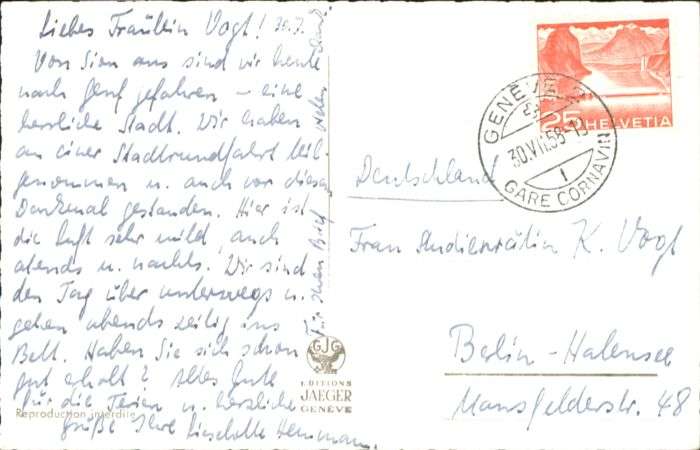 Liebes Fräulein Vogt! 30.7.
Von Sion aus sind wir heute
nach Genf gefahren – eine
herrliche Stadt. Wir haben
an einer Stadtrundfahrt teil-
genommen u. auch vor diesem
Denkmal gestanden. Hier ist
die Luft sehr mild, auch
abends u. nachts. Wir sind
den Tag über unterwegs u.
gehen abends zeitig ins
Bett. Haben Sie sich schon
gut erholt? Alles Gute
für die Ferien u. herzliche
Grüße Ihre Lieselotte
Für Ihren Brief vielen Dank
Reproduction interdite
GJG
EDITIONS
JAEGER
GENÈVE
25 HELVETIA
GENÈVE 2
30.VII.58
1
GARE CORNAVIN
Deutschland
Frau Studienrätin K. Vogt
Berlin-Halensee
Mansfelderstr. 48